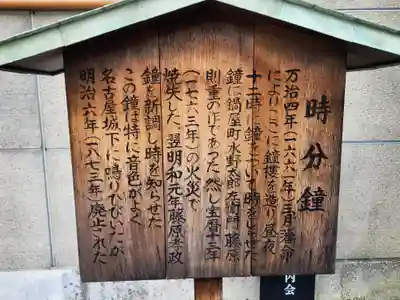 時分鐘
万治四年(一六六一年)三月藩命
によりここに鐘楼を造り昼夜
十二時に鐘をついて時をしらせた
鐘は鍋屋町水野太郎左衛門藤原
則重の作であった 然し宝暦十三年
(一七六三年)の火災で
焼失した 翌明和元年藤原孝政
鐘を新調し時を知らせた
この鐘は特に音色がよく
名古屋城下に鳴りひびいたが
明治六年(一八七三年)廃止された
内会